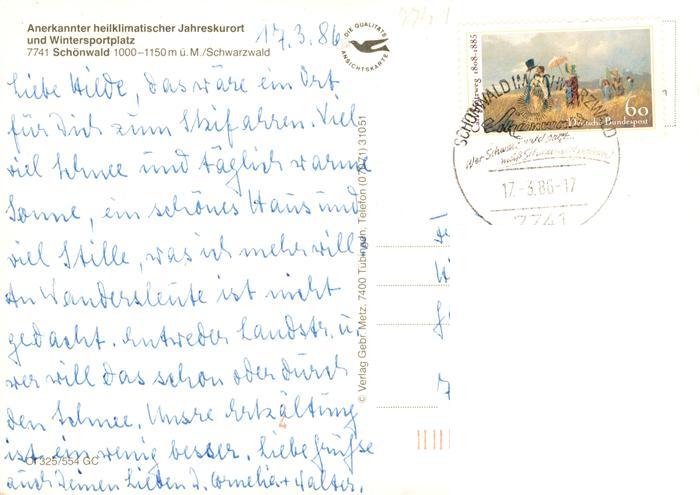 Anerkannter heilklimatischer Jahreskurort
und Wintersportplatz
7741 Schönwald 1000–1150 m ü. M./Schwarzwald
17.3.86
DIE QUALITÄTS
ANSICHTSKARTE
Liebe Hilde, das wäre ein Ort
für Dich zum Skifahren. Viel
viel Schnee und täglich warme
Sonne, ein schönes Haus und
viel Stille, was ich mehr will?
An Wandersleute ist nicht
gedacht. Entweder Landstr. u.
wer will das schon oder durch
den Schnee. Unsre Erkältung
ist ein wenig besser. Liebe Grüsse
auch Deinen Lieben D. Cornelia + Walter.
Cr 325/554 GC
© Verlag Gebr. Metz, 7400 Tübingen, Telefon (07071) 31051
1808-1885
60
Deutsche Bundespost
SCHÖNWALD IM SCHWARZWALD
17.-3.86-17
7741